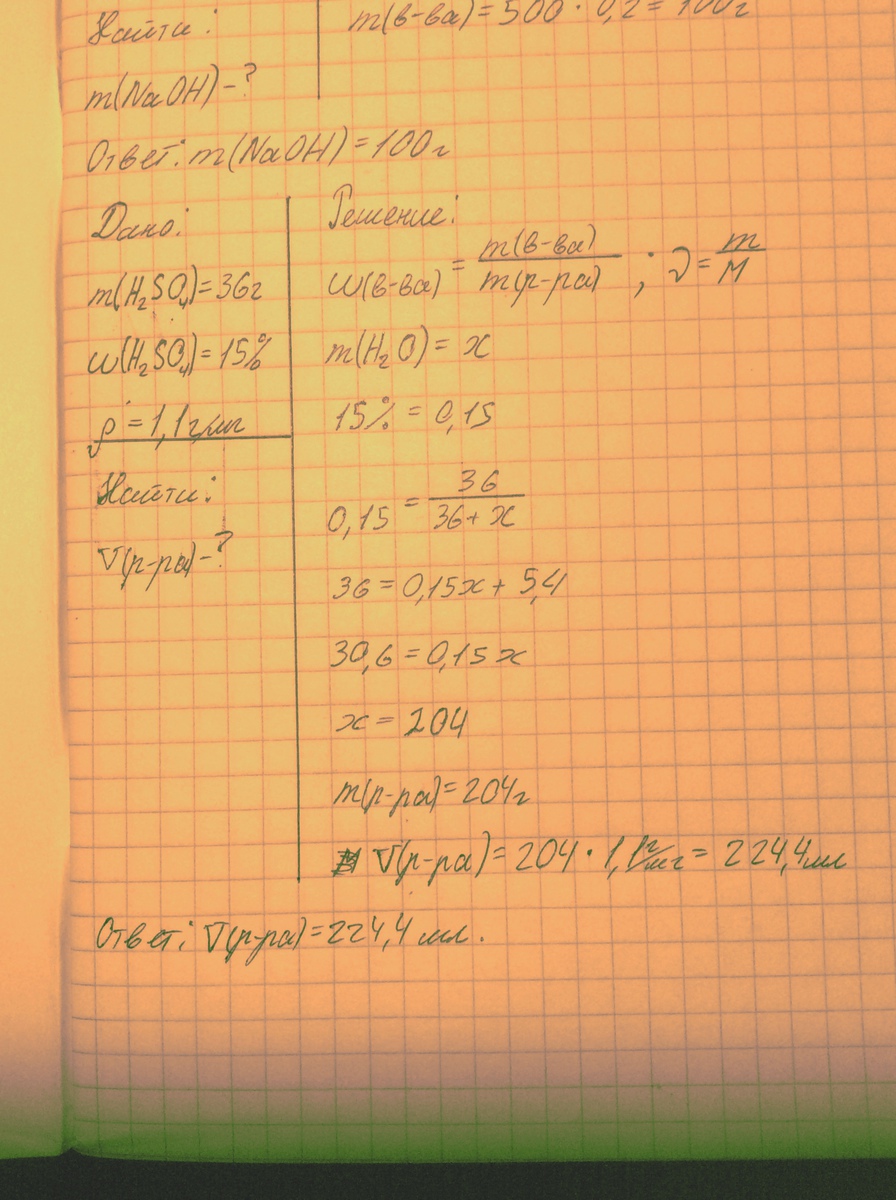 Найти:
m(в-ва) = 500 · 0,2 = 100г
m(NaOH) - ?
Ответ: m(NaOH) = 100г
Дано:
m(H₂SO₄) = 36г
ω(H₂SO₄) = 15%
ρ = 1,1г/мг
Найти:
V(р-ра) - ?
Решение:
ω(в-ва) = m(в-ва)/m(р-ра) ; ν = m/M
m(H₂O) = x
15% = 0,15
0,15 = 36/36+x
36 = 0,15x + 5,4
30,6 = 0,15x
x = 204
m(р-ра) = 204г
V(р-ра) = 204 · 1,1г/мг = 224,4мл
Ответ: V(р-ра) = 224,4 мл.